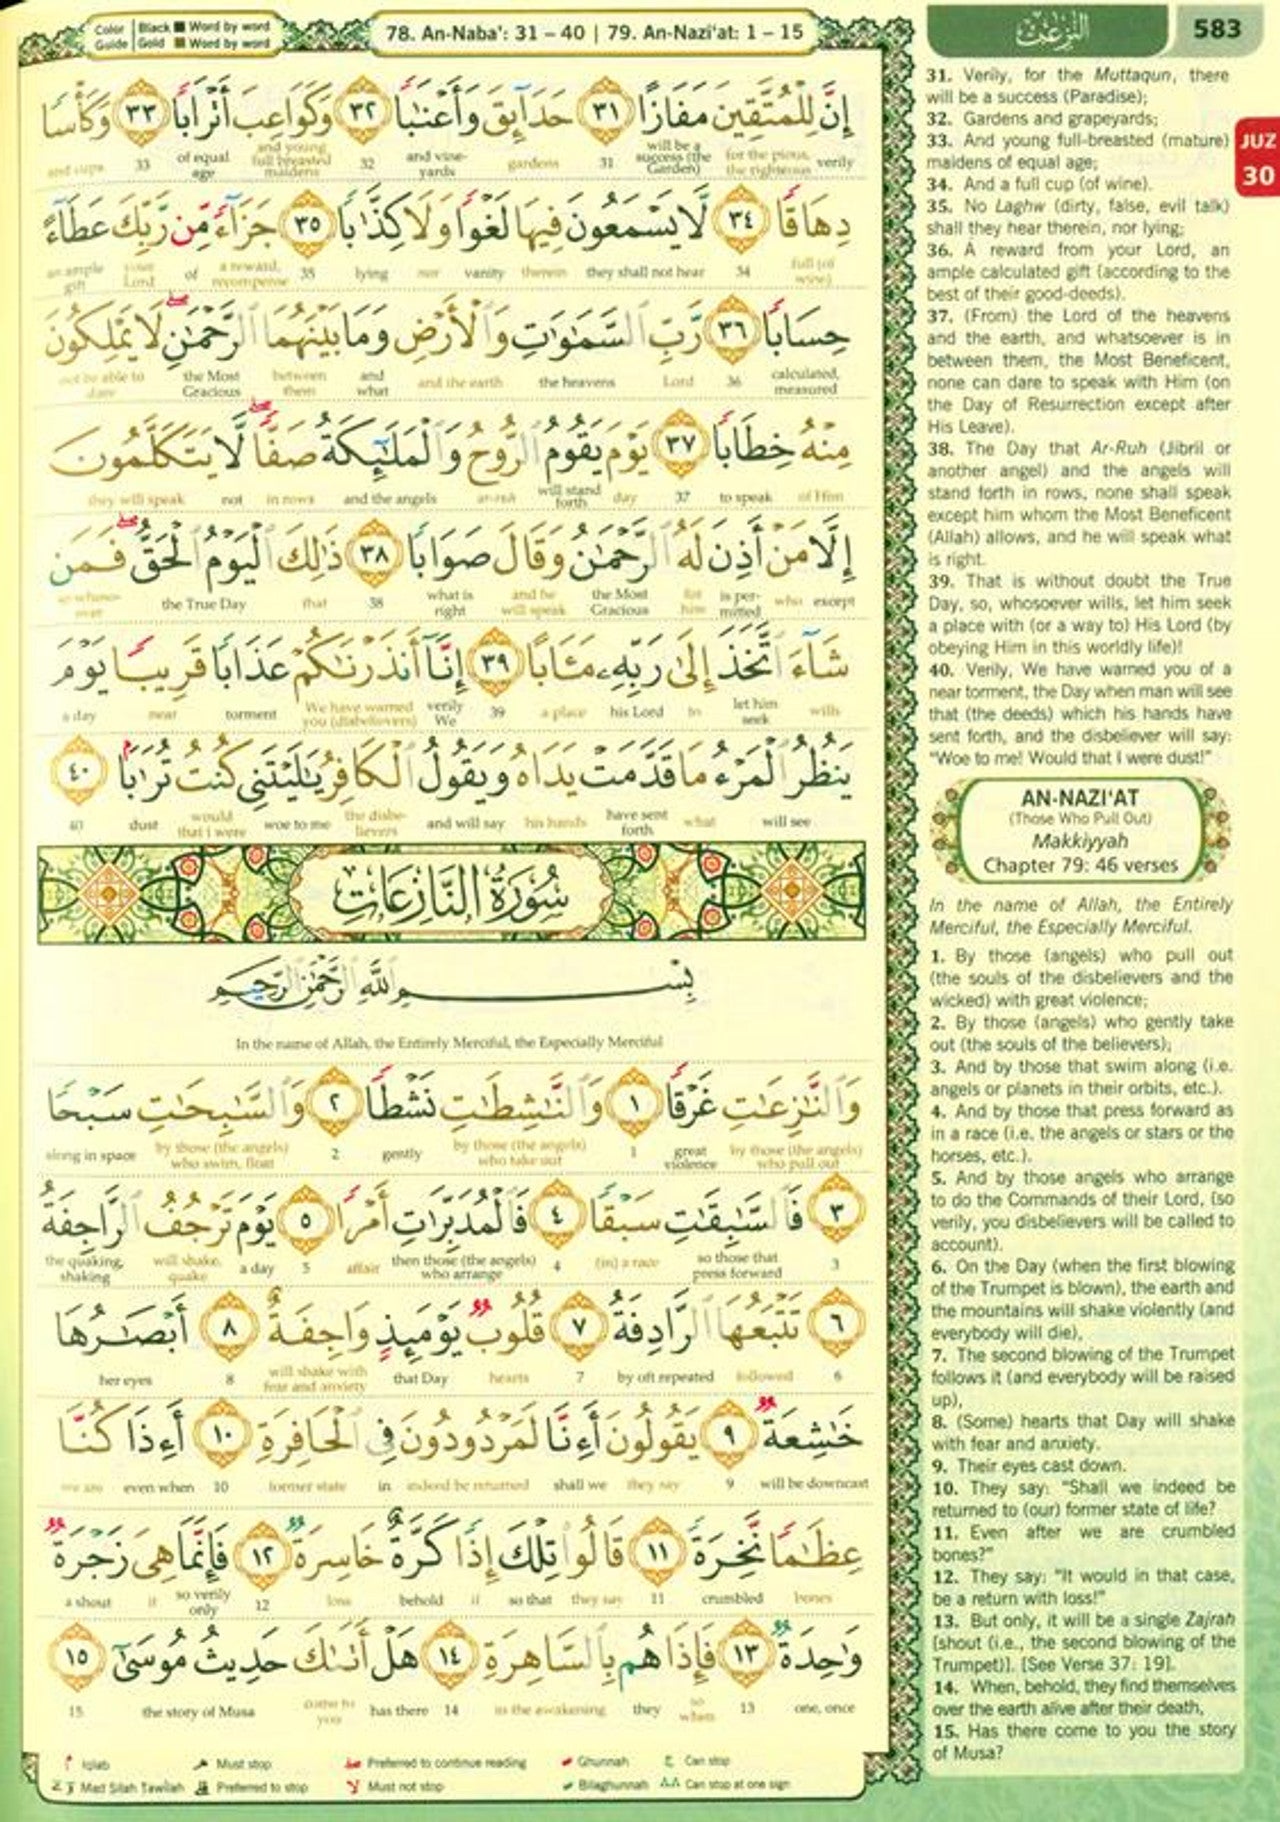 Color Guide | Black ■ Word by word
Gold ■ Word by word
78. An-Naba': 31 – 40 | 79. An-Nazi'at: 1 – 15
النّٰزعٰت
583
JUZ
30
إِنَّ لِلْمُتَّقِينَ مَفَازًا ٣١ حَدَآئِقَ وَأَعْنَٰبًا ٣٢ وَكَوَاعِبَ أَتْرَابًا ٣٣ وَكَأْسًا
verily for the pious, the righteous will be a success (the Garden) 31 gardens and vine-yards 32 and young full breasted maidens of equal age 33 and cups
دِهَاقًا ٣٤ لَّا يَسْمَعُونَ فِيهَا لَغْوًا وَلَا كِذَّٰبًا ٣٥ جَزَآءً مِّن رَّبِّكَ عَطَآءً
full (of wine) 34 they shall not hear therein vanity nor lying 35 a reward, recompense of your Lord an ample gift
حِسَابًا ٣٦ رَّبِّ السَّمَٰوَٰتِ وَالْأَرْضِ وَمَا بَيْنَهُمَا الرَّحْمَٰنِ ۖ لَا يَمْلِكُونَ
calculated, measured 36 Lord the heavens and the earth and what between them the Most Gracious not be able to dare
مِنْهُ خِطَابًا ٣٧ يَوْمَ يَقُومُ الرُّوحُ وَالْمَلَٰٓئِكَةُ صَفًّا ۖ لَّا يَتَكَلَّمُونَ
of Him to speak 37 day will stand forth ar-ruh and the angels in rows not they will speak
إِلَّا مَنْ أَذِنَ لَهُ الرَّحْمَٰنُ وَقَالَ صَوَابًا ٣٨ ذَٰلِكَ الْيَوْمُ الْحَقُّ ۖ فَمَن
except who is per-mitted for him the Most Gracious and he will speak what is right 38 that the True Day so whoso-ever
شَآءَ اتَّخَذَ إِلَىٰ رَبِّهِۦ مَـَٔابًا ٣٩ إِنَّآ أَنذَرْنَٰكُمْ عَذَابًا قَرِيبًا يَوْمَ
wills let him seek to his Lord a place 39 verily We We have warned you (disbelievers) torment near a day
يَنظُرُ الْمَرْءُ مَا قَدَّمَتْ يَدَاهُ وَيَقُولُ الْكَافِرُ يَٰلَيْتَنِى كُنتُ تُرَٰبًا ٤٠
will see what have sent forth his hands and will say the disbe-lievers woe to me would that i were dust 40
سُورَةُ النَّازِعَاتِ
بِسْمِ اللَّهِ الرَّحْمَٰنِ الرَّحِيمِ
In the name of Allah, the Entirely Merciful, the Especially Merciful
وَالنَّٰزِعَٰتِ غَرْقًا ١ وَالنَّٰشِطَٰتِ نَشْطًا ٢ وَالسَّٰبِحَٰتِ سَبْحًا
by those (the angels) who pull out great violence 1 by those (the angels) who take out gently 2 by those (the angels) who swim, float along in space
٣ فَالسَّٰبِقَٰتِ سَبْقًا ٤ فَالْمُدَبِّرَٰتِ أَمْرًا ٥ يَوْمَ تَرْجُفُ الرَّاجِفَةُ
3 so those that press forward (in) a race 4 then those (the angels) who arrange affair 5 a day will shake, quake the quaking, shaking
٦ تَتْبَعُهَا الرَّادِفَةُ ٧ قُلُوبٌ يَوْمَئِذٍ وَاجِفَةٌ ٨ أَبْصَٰرُهَا
6 followed by oft repeated 7 hearts that Day will shake with fear and anxiety 8 her eyes
خَٰشِعَةٌ ٩ يَقُولُونَ أَءِنَّا لَمَرْدُودُونَ فِى الْحَافِرَةِ ١٠ أَءِذَا كُنَّا
will be downcast 9 they say shall we indeed be returned in former state 10 even when we are
عِظَٰمًا نَّخِرَةً ١١ قَالُوا تِلْكَ إِذًا كَرَّةٌ خَاسِرَةٌ ١٢ فَإِنَّمَا هِىَ زَجْرَةٌ
bones crumbled 11 they say so that if behold loss 12 so verily only it a shout
وَٰحِدَةٌ ١٣ فَإِذَا هُم بِالسَّاهِرَةِ ١٤ هَلْ أَتَىٰكَ حَدِيثُ مُوسَىٰٓ ١٥
one, once 13 so when they in the awakening 14 has there come to you the story of Musa 15
Iqlab Must stop Preferred to continue reading Ghunnah Can stop
Mad Silah Tawilah Preferred to stop Must not stop Bilaghunnah Can stop at one sign
31. Verily, for the Muttaqun, there
will be a success (Paradise);
32. Gardens and grapeyards;
33. And young full-breasted (mature)
maidens of equal age;
34. And a full cup (of wine).
35. No Laghw (dirty, false, evil talk)
shall they hear therein, nor lying;
36. A reward from your Lord, an
ample calculated gift (according to the
best of their good-deeds).
37. (From) the Lord of the heavens
and the earth, and whatsoever is in
between them, the Most Beneficent,
none can dare to speak with Him (on
the Day of Resurrection except after
His Leave).
38. The Day that Ar-Ruh (Jibril or
another angel) and the angels will
stand forth in rows, none shall speak
except him whom the Most Beneficent
(Allah) allows, and he will speak what
is right.
39. That is without doubt the True
Day, so, whosoever wills, let him seek
a place with (or a way to) His Lord (by
obeying Him in this worldly life)!
40. Verily, We have warned you of a
near torment, the Day when man will see
that (the deeds) which his hands have
sent forth, and the disbeliever will say:
"Woe to me! Would that I were dust!"
AN-NAZI'AT
(Those Who Pull Out)
Makkiyyah
Chapter 79: 46 verses
In the name of Allah, the Entirely
Merciful, the Especially Merciful.
1. By those (angels) who pull out
(the souls of the disbelievers and the
wicked) with great violence;
2. By those (angels) who gently take
out (the souls of the believers);
3. And by those that swim along (i.e.
angels or planets in their orbits, etc.).
4. And by those that press forward as
in a race (i.e. the angels or stars or the
horses, etc.).
5. And by those angels who arrange
to do the Commands of their Lord, (so
verily, you disbelievers will be called to
account).
6. On the Day (when the first blowing
of the Trumpet is blown), the earth and
the mountains will shake violently (and
everybody will die),
7. The second blowing of the Trumpet
follows it (and everybody will be raised
up),
8. (Some) hearts that Day will shake
with fear and anxiety.
9. Their eyes cast down.
10. They say: "Shall we indeed be
returned to (our) former state of life?
11. Even after we are crumbled
bones?"
12. They say: "It would in that case,
be a return with loss!"
13. But only, it will be a single Zajrah
[shout (i.e., the second blowing of the
Trumpet)]. [See Verse 37: 19].
14. When, behold, they find themselves
over the earth alive after their death,
15. Has there come to you the story
of Musa?